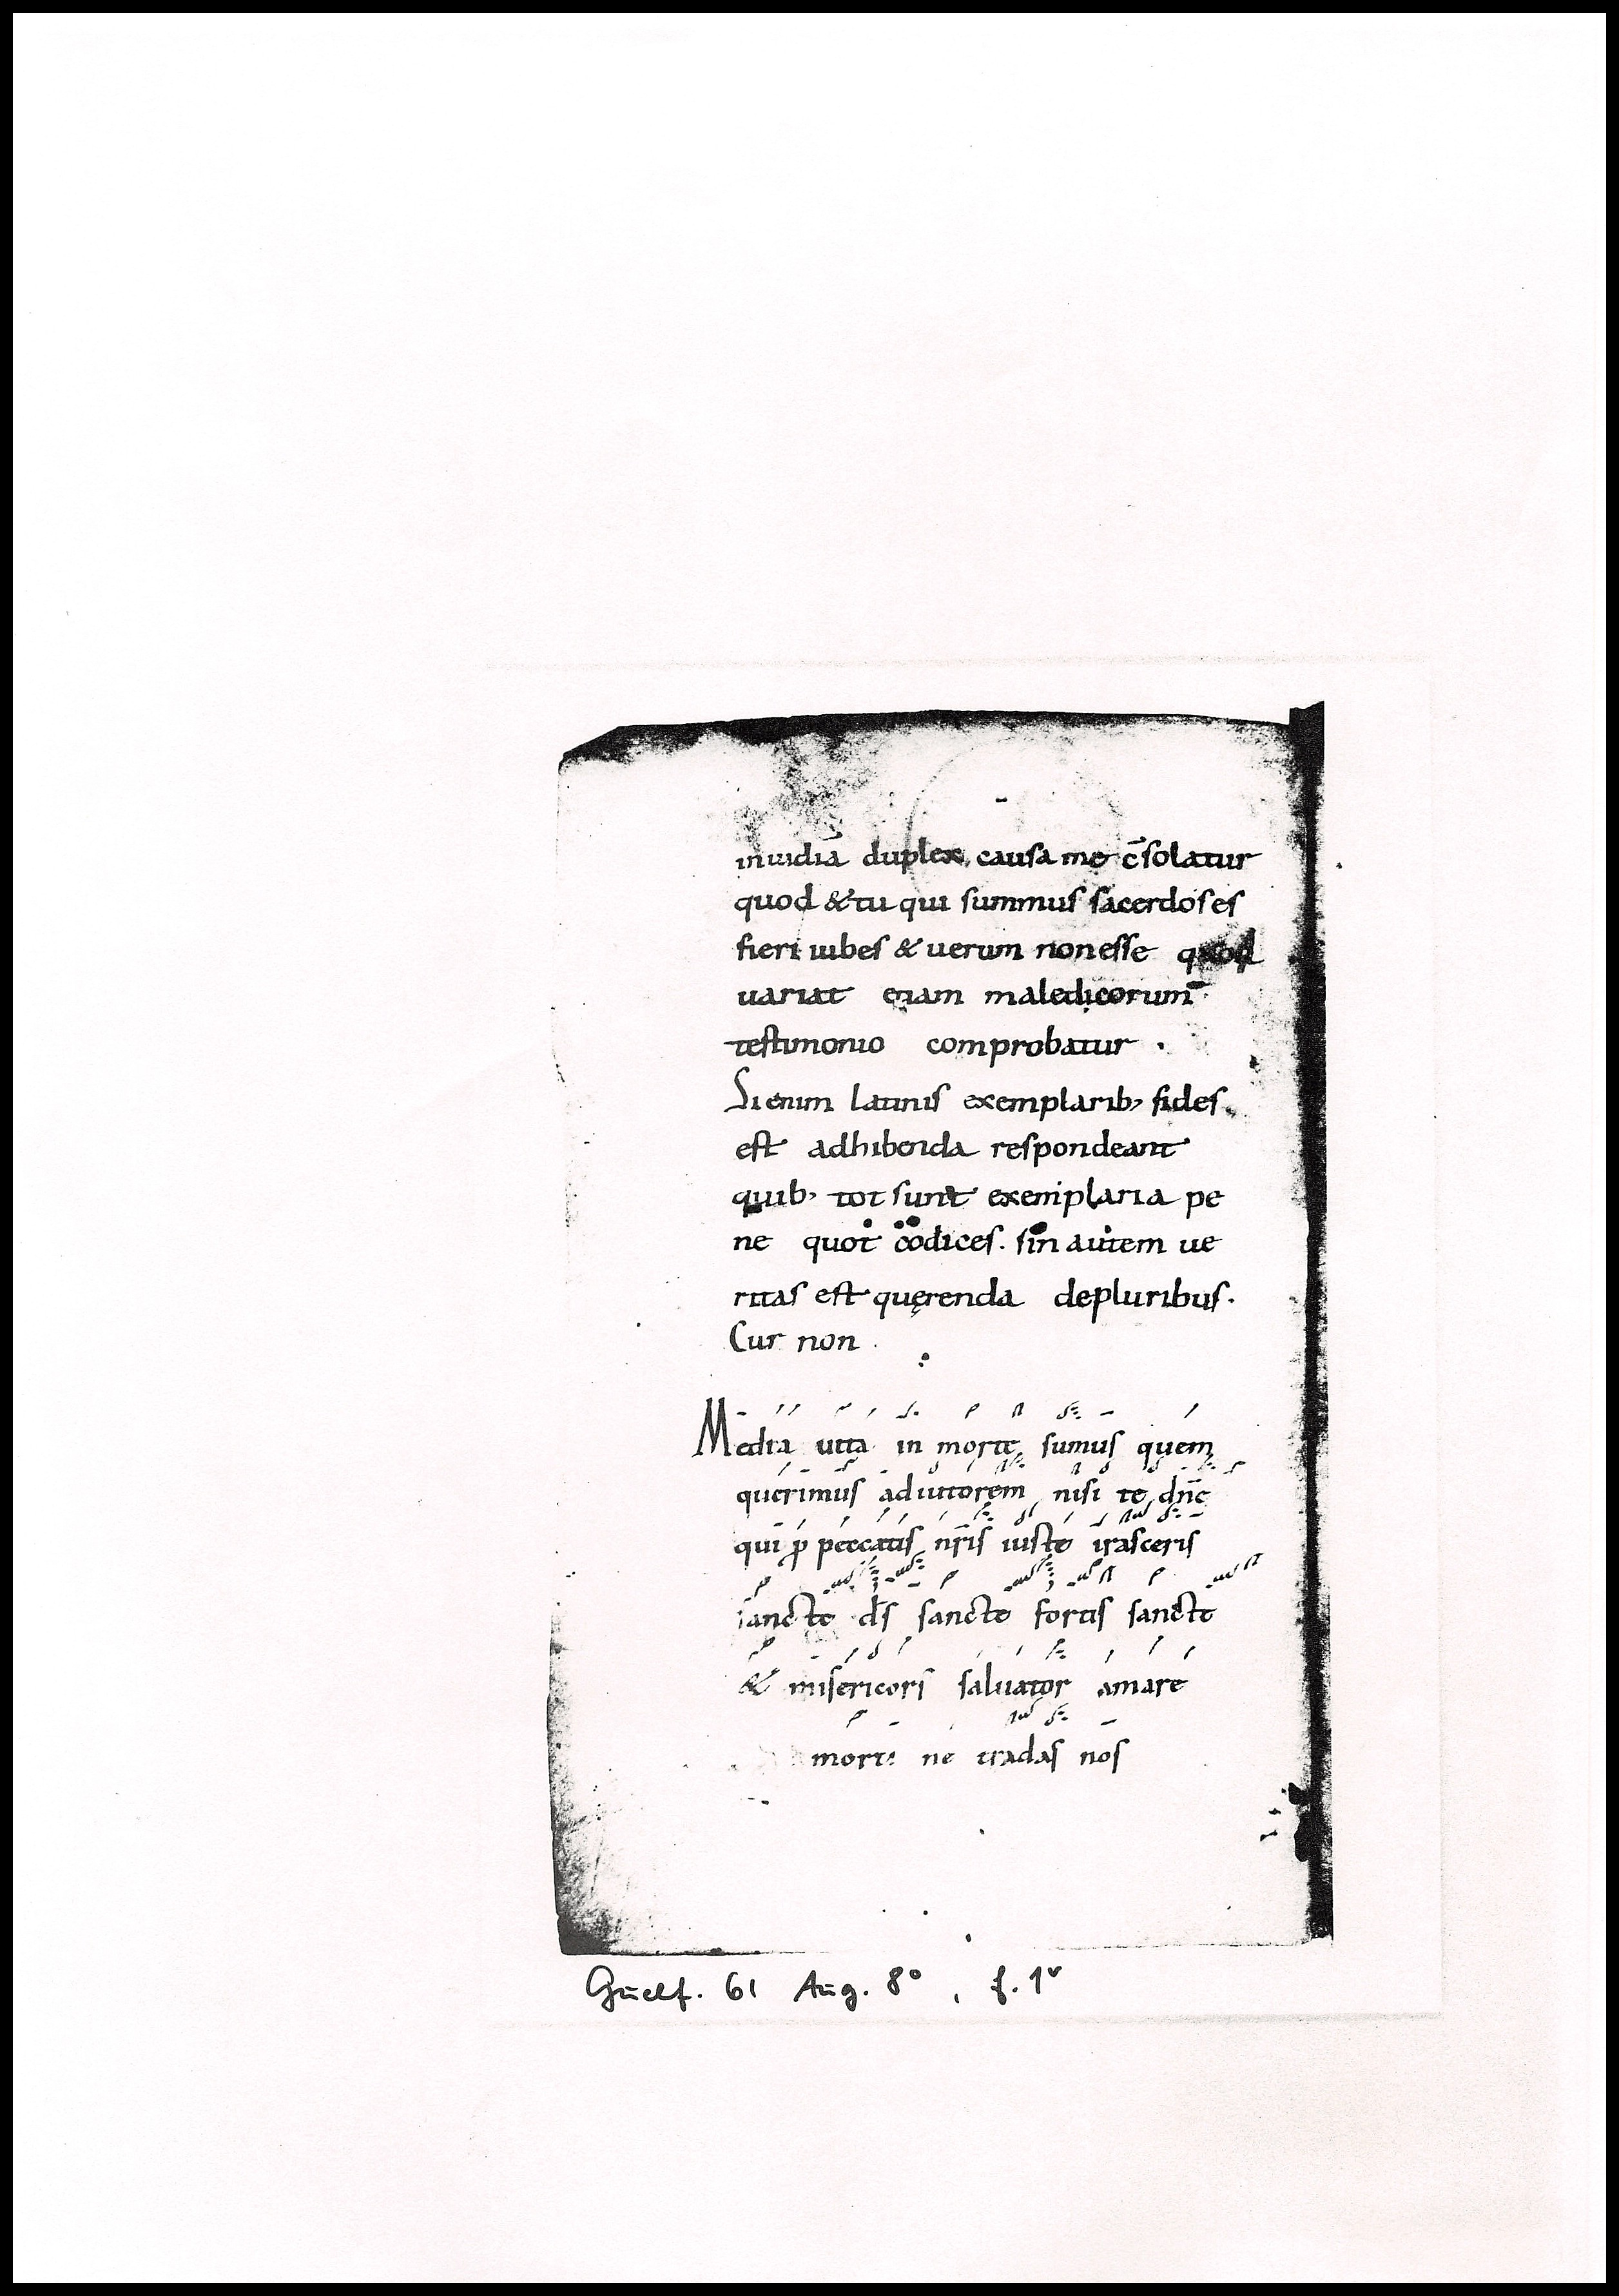 inuidiā duplex causa me c̄solatur
quod & tu qui summus sacerdos es
fieri iubes & uerum non esse quod
uariat etiam maledicorum
testimonio comprobatur .
Si enim latinis exemplarib; fides
est adhibenda respondeant
quib; tot sunt exemplaria pe
ne quot codices. sin autem ue
ritas est quęrenda de pluribus.
Cur non .
Media uita in morte sumus quem
querimus adiutorem nisi te dn̄e
qui p̱ peccatis nr̄is iuste irasceris
sancte d̄s sancte fortis sancte
& misericors saluator amare
morti ne tradas nos
Guelf. 61 Aug. 8° , f. 1v